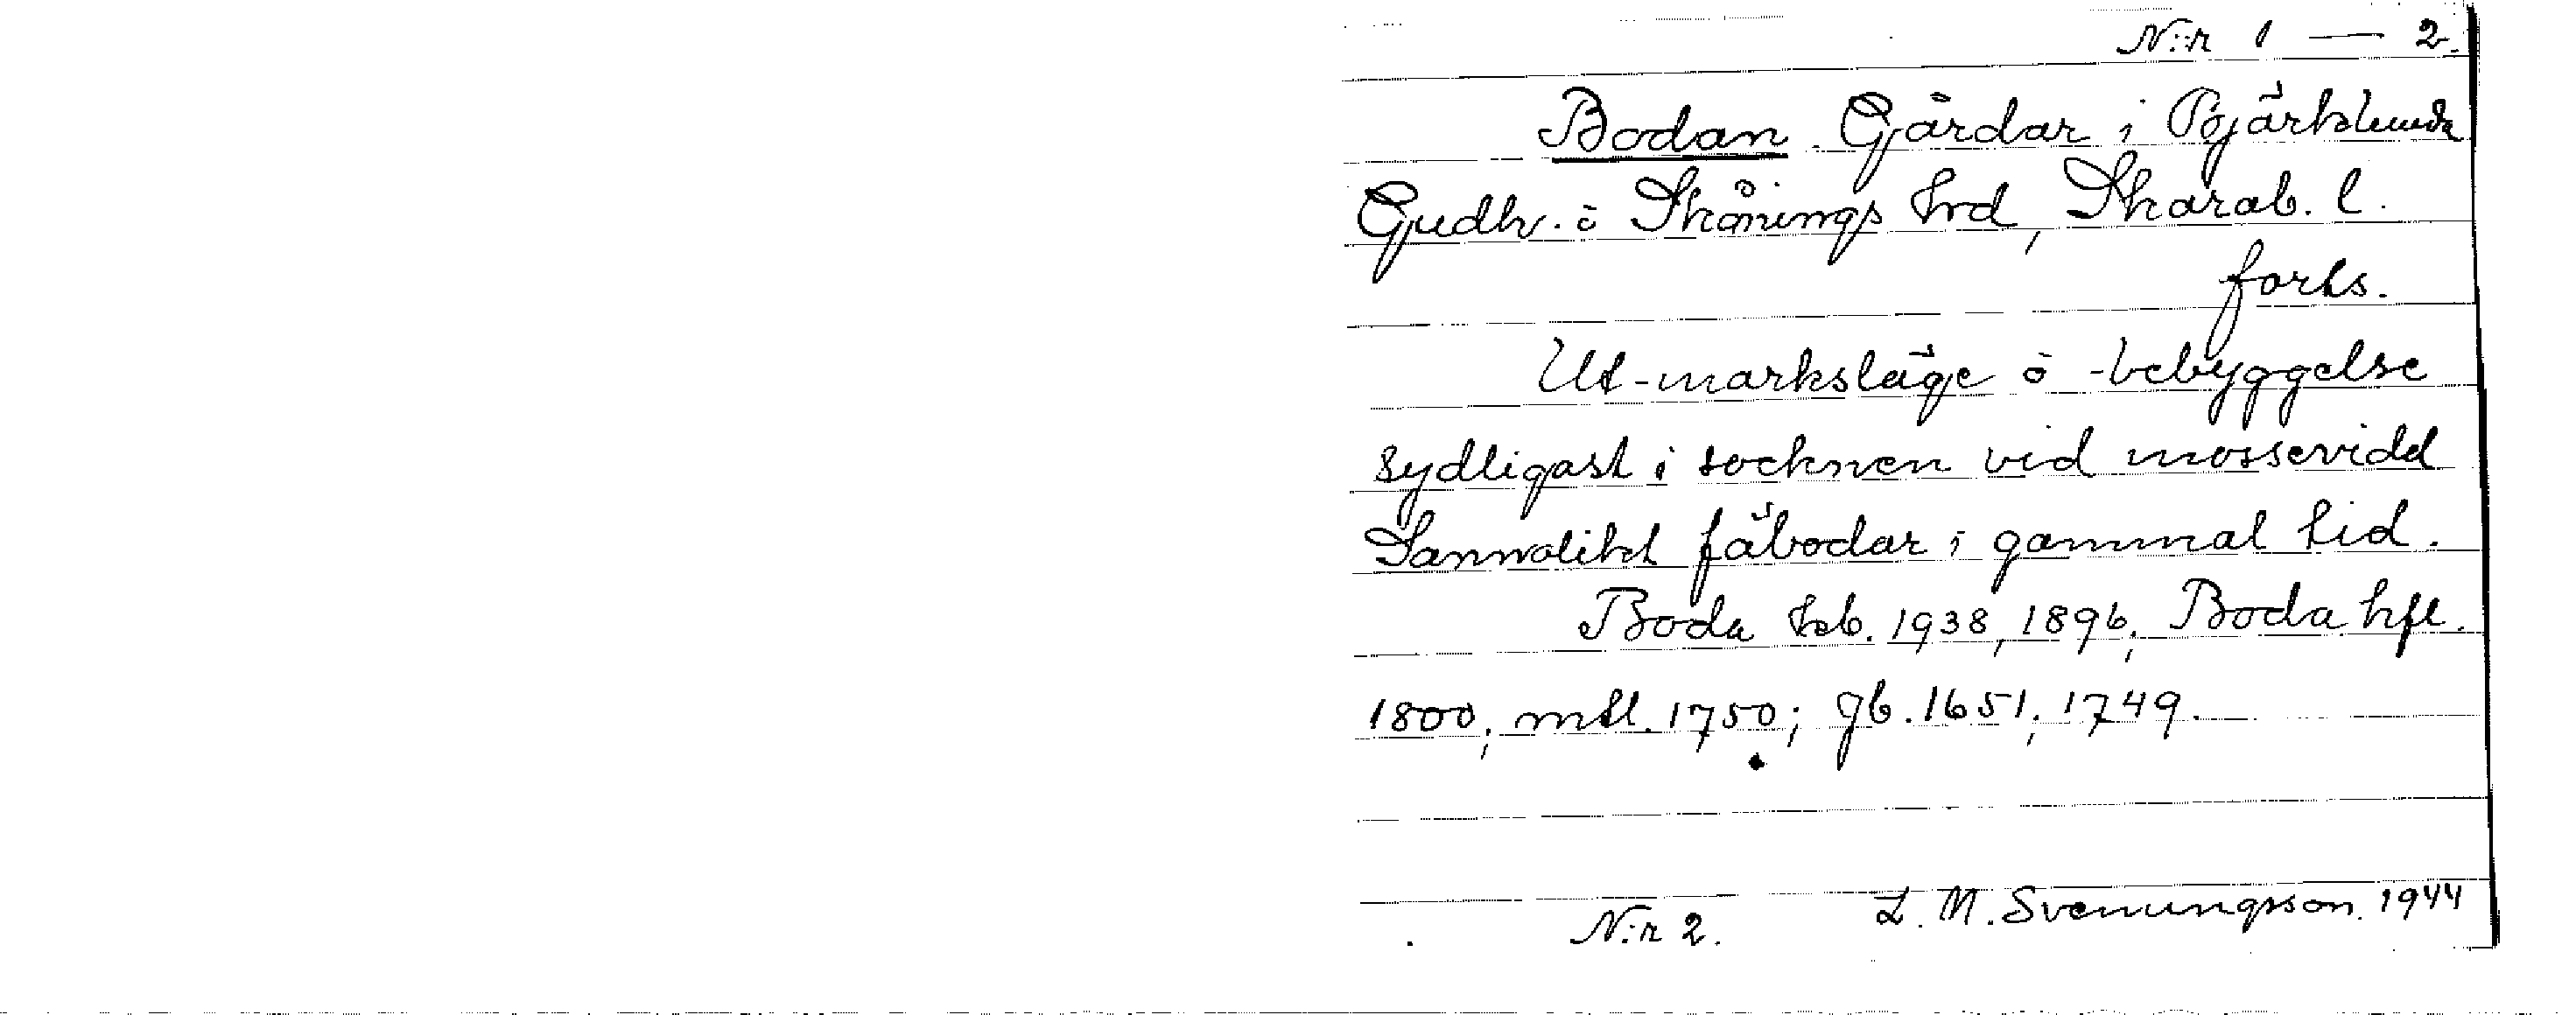 N:r 1 — 2.
Bodan Gårdar i Bjärklunda
Gudh. i Skånings hrd, Skarab. l.
forts.
Ut-marksläge o -bebyggelse
sydligast i socknen vid mossevidd
Sannolikt fäbodar i gammal tid.
Boda kb. 1938, 1896, Boda hfl.
1800, mtl. 1750; gb. 1651, 1749.
N:r 2. L. M. Svenungsson. 1944